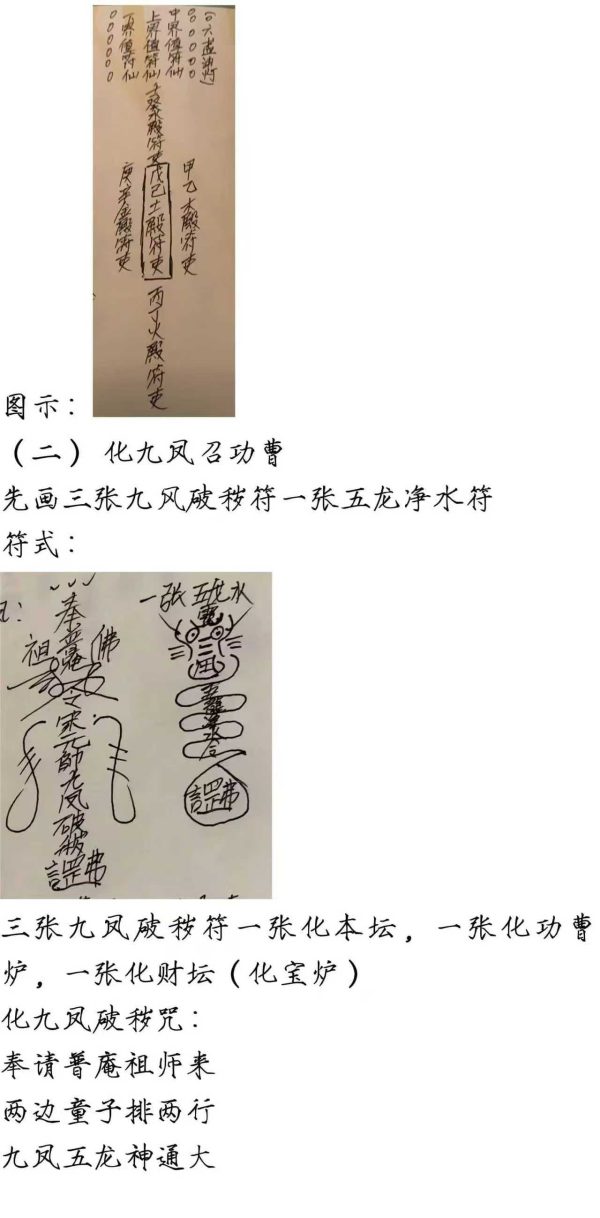 (○六盏油灯)
○○○○○
中界值符仙
上界值符仙
下界值符仙
○○○○○
壬癸水殿符吏
甲乙木殿符吏
戊己土殿符吏
庚辛金殿符吏
丙丁火殿符吏
图示：
（二） 化九凤召功曹
先画三张九风破秽符一张五龙净水符
符式：
一张五龙水
奉普庵
祖 佛
令宋元帅九凤破秽
罡
三张九凤破秽符一张化本坛，一张化功曹
炉，一张化财坛（化宝炉）
化九凤破秽咒：
奉请普庵祖师来
两边童子排两行
九凤五龙神通大